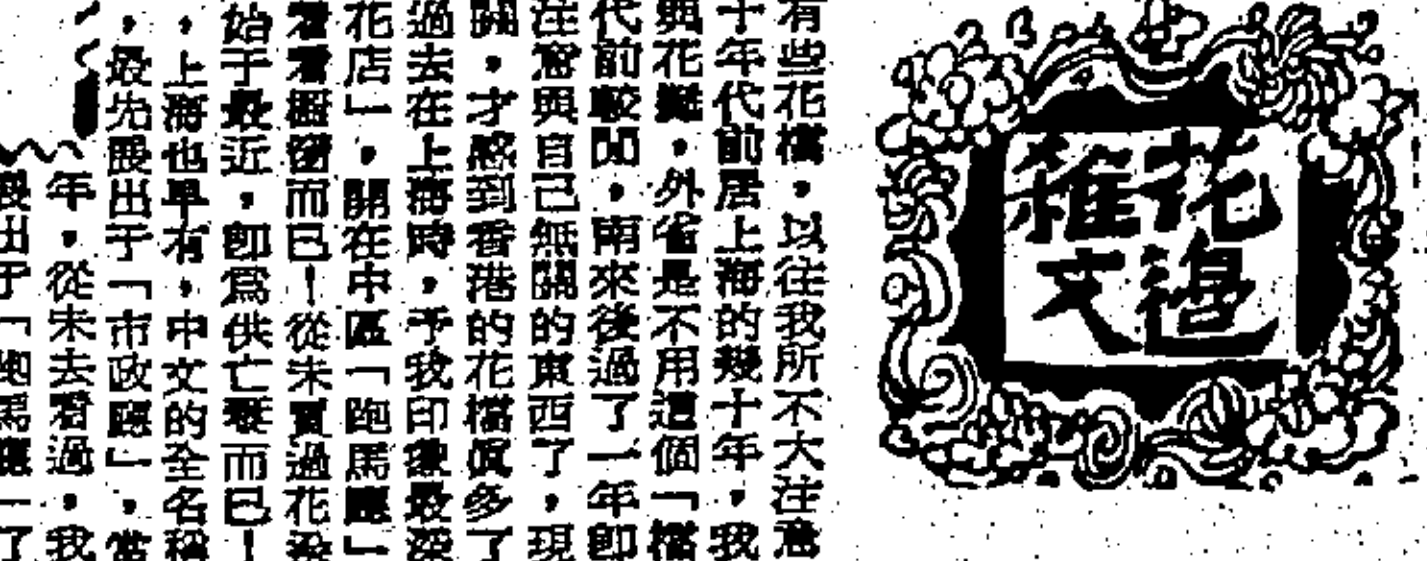 花邊
雜文
有些花檔，以往我所不大注意
十年代前居上海的幾十年，我
與花攤，外省是不用這個「檔
代前較閒，南來後過了一年卽
注意與自己無關的東西了，現
關，才感到香港的花檔眞多了
過去在上海時，予我印象最深
花店」，開在中區「跑馬廳」
着看櫥窗而已！從未買過花
始于最近，卽爲供亡妻而已！
，上海也早有，中文的全名稱
，最先展出于「市政廳」，當
年，從未去看過，我
展出于「跑馬廳」了